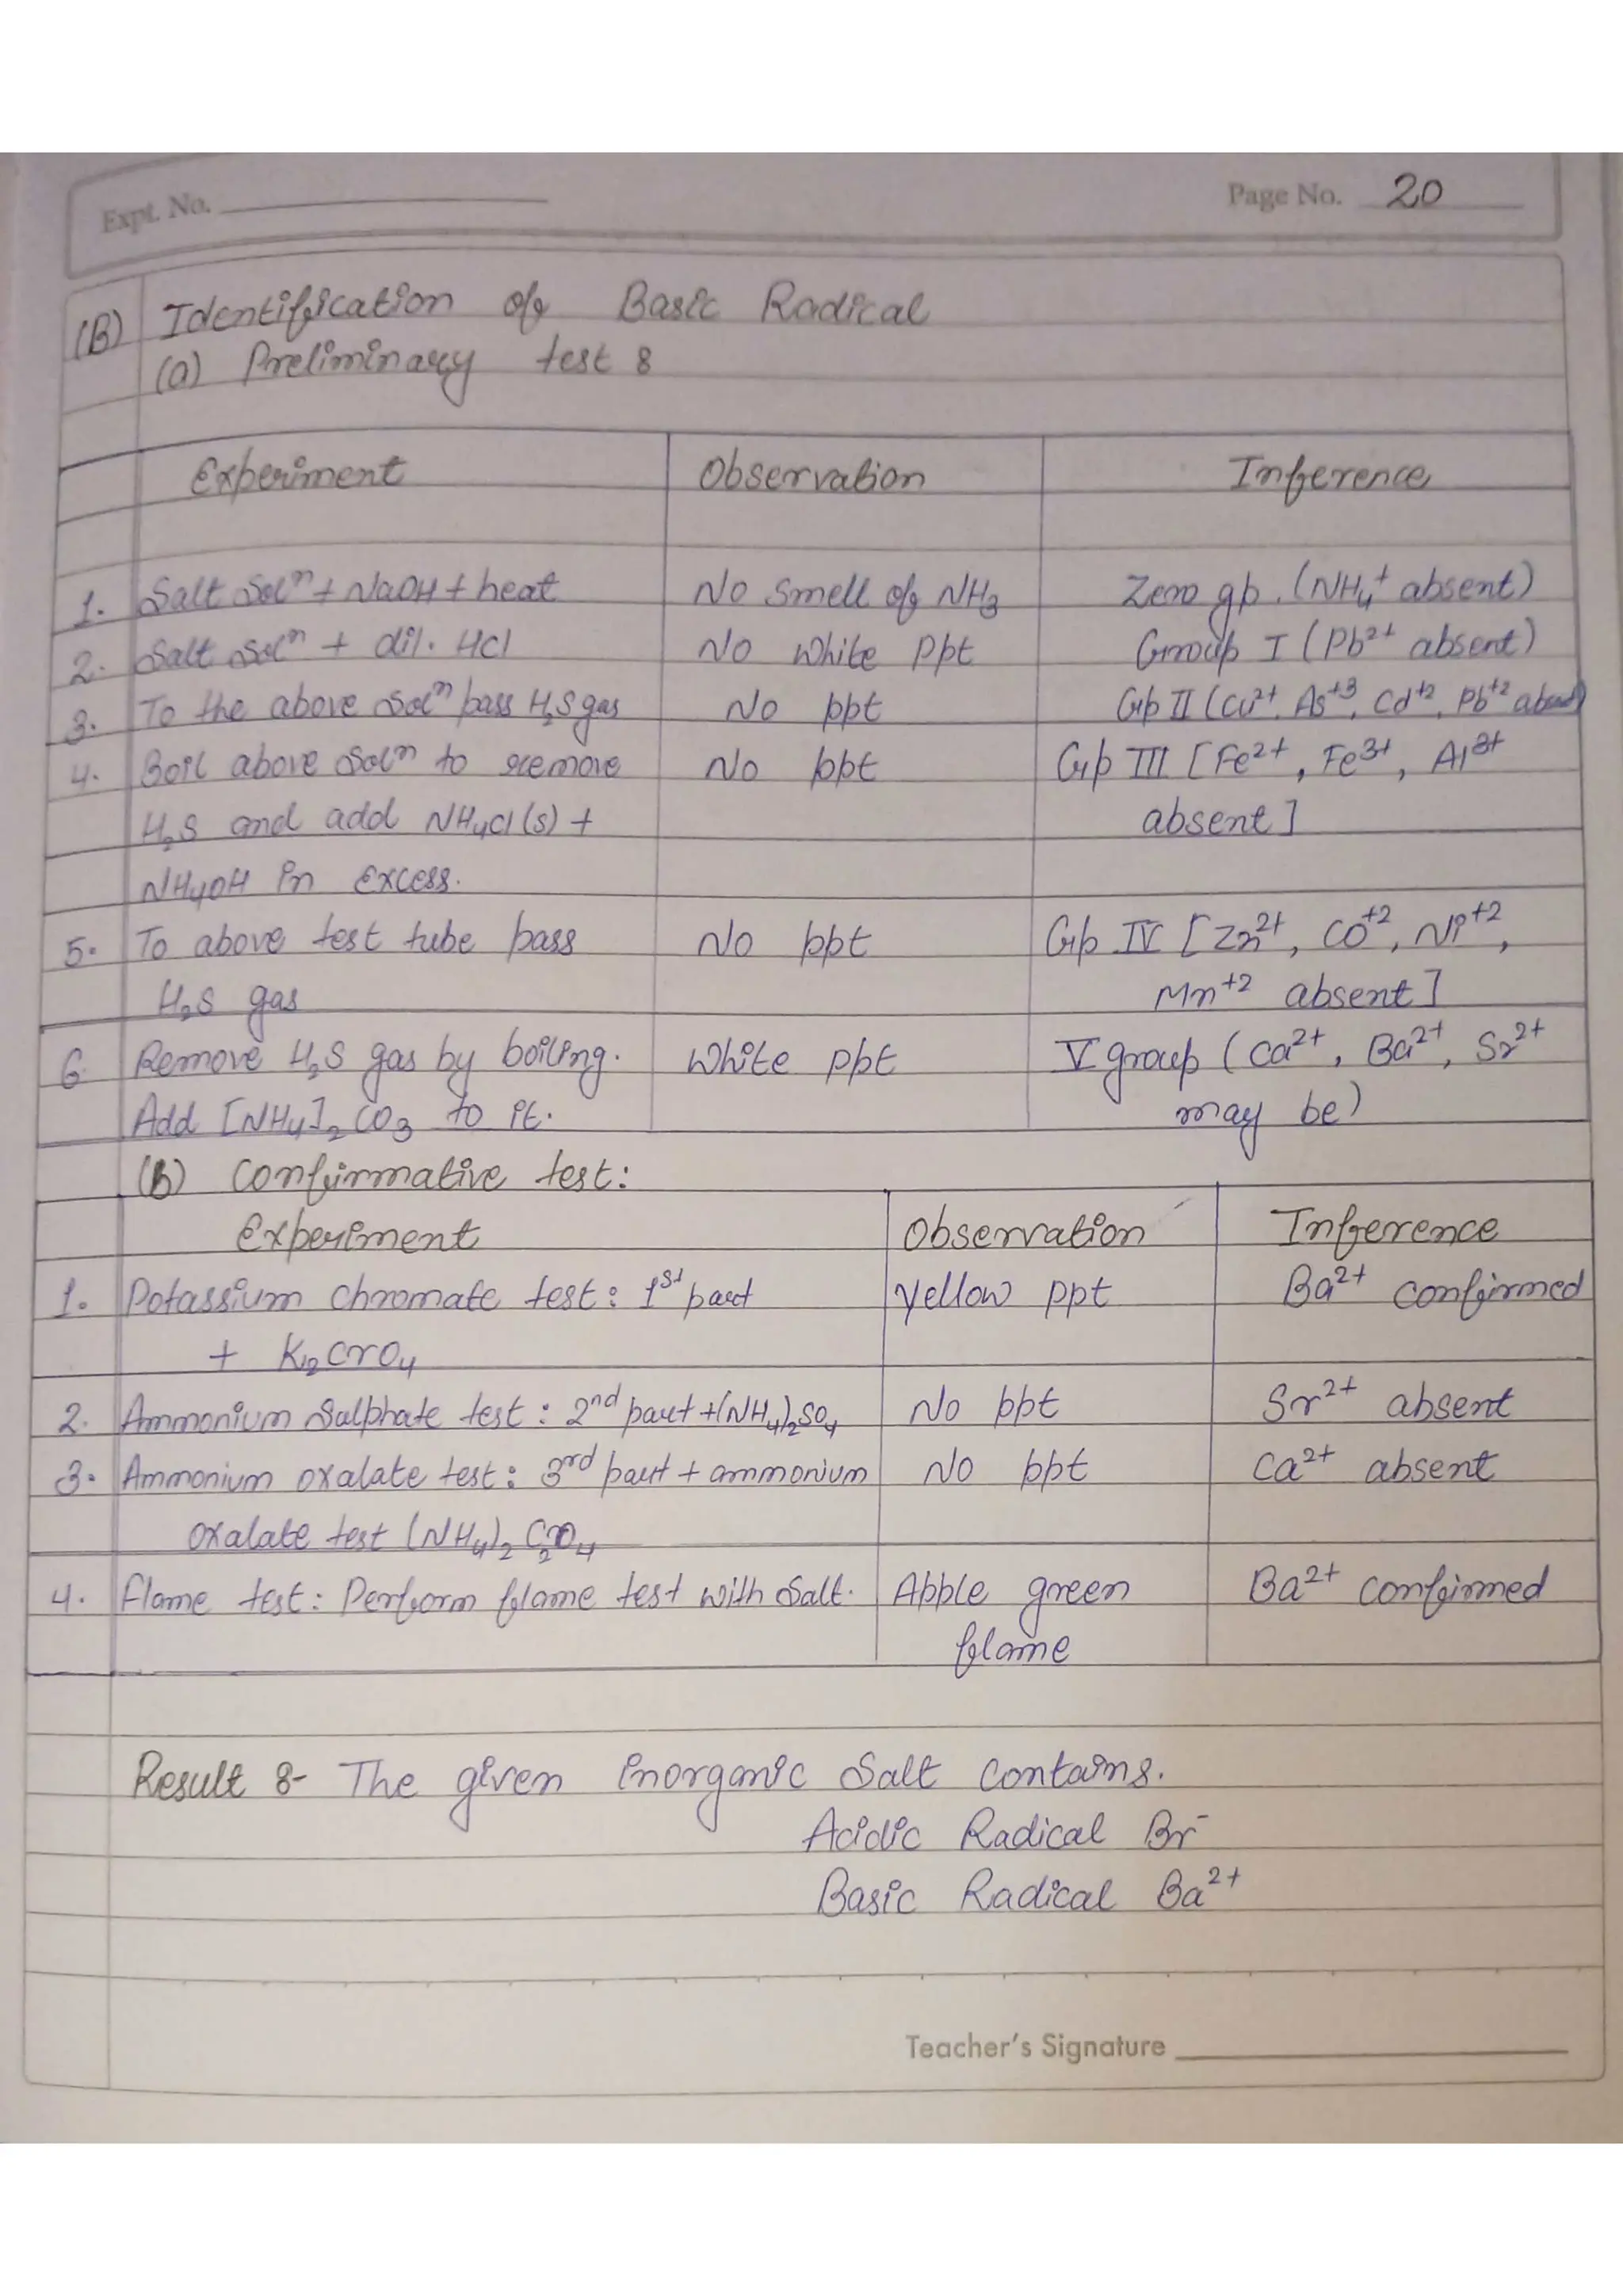 Expt. No.
Page No. 20
(B) Identification of Basic Radical
(a) Preliminary test :
Experiment Observation Inference
1. Salt Solⁿ + NaOH + heat No Smell of NH₃ Zero gp. (NH₄⁺ absent)
2. Salt Solⁿ + dil. HCl No White ppt Group I (Pb²⁺ absent)
3. To the above Solⁿ pass H₂S gas No ppt Gp II (Cu²⁺, As⁺³, Cd⁺², Pb⁺² absent)
4. Boil above Solⁿ to remove No ppt Gp III [Fe²⁺, Fe³⁺, Al³⁺
H₂S and add NH₄Cl(s) + absent]
NH₄OH in excess.
5. To above test tube pass No ppt Gp IV [Zn²⁺, CO⁺², Ni⁺²,
H₂S gas Mn⁺² absent]
6 Remove H₂S gas by boiling. White ppt V group (Ca²⁺, Ba²⁺, Sr²⁺
Add [NH₄]₂CO₃ to it. may be)
(b) Confirmative test:
Experiment Observation Inference
1. Potassium chromate test: 1ˢᵗ part Yellow ppt Ba²⁺ confirmed
+ K₂CrO₄
2. Ammonium Sulphate test: 2ⁿᵈ part + (NH₄)₂SO₄ No ppt Sr²⁺ absent
3. Ammonium oxalate test: 3ʳᵈ part + ammonium No ppt Ca²⁺ absent
oxalate test (NH₄)₂C₂O₄
4. Flame test: Perform flame test with Salt. Apple green Ba²⁺ confirmed
flame
Result :- The given inorganic Salt contains.
Acidic Radical Br⁻
Basic Radical Ba²⁺
Teacher's Signature